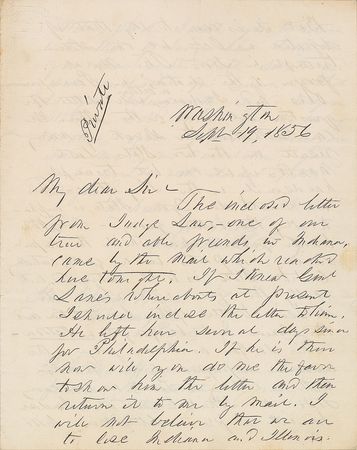 Private
Washington
Sept 19, 1856
My dear Sir –
The inclosed letter
from Judge Law, – one of our
true and able friends, in Indiana,
came by the mail which reached
here tonight. If I knew Genl
Lane's whereabouts at present
I should inclose the letter to him.
He left here several days since
for Philadelphia. If he is there
now will you do me the favor
to show him the letter and then
return it to me by mail. I
will not believe that we are
to lose Indiana and Illinois.